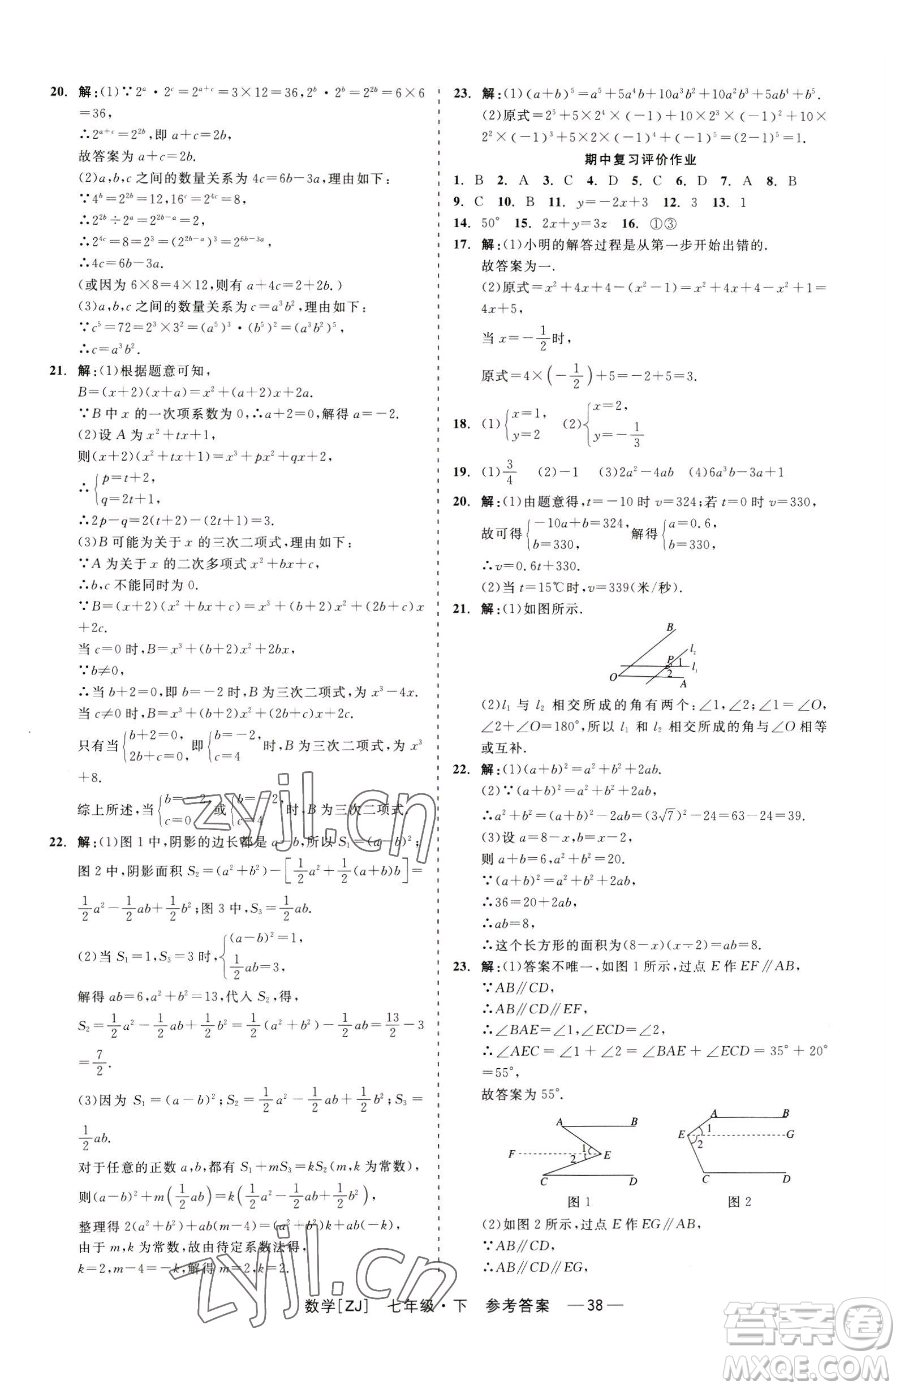 20. 解:(1)∵2ᵃ·2ᶜ=2ᵃ⁺ᶜ=3×12=36,2ᵇ·2ᵇ=2²ᵇ=6×6
=36,
∴2ᵃ⁺ᶜ=2²ᵇ,即 a+c=2b.
故答案为 a+c=2b.
(2)a,b,c 之间的数量关系为 4c=6b-3a,理由如下:
∵4ᵇ=2²ᵇ=12,16ᶜ=2⁴ᶜ=8,
∴2²ᵇ÷2ᵃ=2²ᵇ⁻ᵃ=12÷6=2,
∴2⁴ᶜ=8=2³=(2²ᵇ⁻ᵃ)³=2⁶ᵇ⁻³ᵃ,
∴4c=6b-3a.
(3)a,b,c 之间的数量关系为 c=a³b²,理由如下:
∵c⁵=72=2³×3²=(a⁵)³·(b⁵)²=(a³b²)⁵,
∴c=a³b².
21. 解:(1)根据题意可知,
B=(x+2)(x+a)=x²+(a+2)x+2a.
∵B 中 x 的一次项系数为 0,∴a+2=0,解得 a=-2.
(2)设 A 为 x²+tx+1,
则(x+2)(x²+tx+1)=x³+px²+qx+2,
∴{p=t+2,
q=2t+1,
∴2p-q=2(t+2)-(2t+1)=3.
(3)B 可能为关于 x 的三次二项式,理由如下:
∵A 为关于 x 的二次多项式 x²+bx+c,
∴b,c 不能同时为 0.
∵B=(x+2)(x²+bx+c)=x³+(b+2)x²+(2b+c)x
+2c.
当 c=0 时,B=x³+(b+2)x²+2bx.
∵b≠0,
∴只有当 b+2=0,即 b=-2 时,B 为三次二项式,为 x³-4x.
当 c≠0 时,B=x³+(b+2)x²+(2b+c)x+2c.
只有当{b+2=0, 2b+c=0, 即{b=-2, c=4 时,B 为三次二项式,为 x³
+8.
综上所述,当{b=-2, c=0 或{b=-2, c=4 时,B 为三次二项式.
22. 解:(1)图 1 中,阴影的边长都是 a-b,所以 S₁=(a-b)²;
图 2 中,阴影面积 S₂=(a²+b²)-[1/2a²+1/2(a+b)b]=
1/2a²-1/2ab+1/2b²;图 3 中,S₃=1/2ab.
(2)当 S₁=1,S₃=3 时,{(a-b)²=1, 1/2ab=3,
解得 ab=6,a²+b²=13,代入 S₂ 得,
S₂=1/2a²-1/2ab+1/2b²=1/2(a²+b²)-1/2ab=13/2-3
=7/2.
(3)因为 S₁=(a-b)²,S₂=1/2a²-1/2ab+1/2b²,S₃=
1/2ab.
对于任意的正数 a,b,都有 S₁+mS₃=kS₂(m,k 为常数),
则(a-b)²+m(1/2ab)=k(1/2a²-1/2ab+1/2b²),
整理得 2(a²+b²)+ab(m-4)=k(a²+b²)-kab,
由于 m,k 为常数,故由待定系数法得,
k=2,m-4=-k,解得 m=2,k=2.
23. 解:(1)(a+b)⁵=a⁵+5a⁴b+10a³b²+10a²b³+5ab⁴+b⁵.
(2)原式=2⁵+5×2⁴×(-1)+10×2³×(-1)²+10×
2²×(-1)³+5×2×(-1)⁴+(-1)⁵=(2-1)⁵=1.
期中复习评价作业
1. B 2. A 3. C 4. D 5. D 6. C 7. A 8. B
9. C 10. B 11. y=-2x+3 12. 3 13. 1
14. 50° 15. 2x+y=3z 16. ①③
17. 解:(1)小明的解答过程是从第一步开始出错的.
故答案为一.
(2)原式=x²+4x+4-(x²-1)=x²+4x+4-x²+1=
4x+5,
当 x=-1/2时,
原式=4×(-1/2)+5=-2+5=3.
18. (1){x=1, y=2 (2){x=2, y=-1/3
19. (1)3/4 (2)-1 (3)2a²-4ab (4)6a³b-3a+1
20. 解:(1)由题意得,t=-10 时 v=324;若 t=0 时,v=330,
故可得{-10a+b=324, b=330, 解得{a=0.6, b=330,
∴v=0.6t+330.
(2)当 t=15℃时,v=339(米/秒).
21. 解:(1)如图所示.
B
l₂
P 1
2 l₁
O A
(2)l₁ 与 l₂ 相交所成的角有两个:∠1,∠2;∠1=∠O,
∠2+∠O=180°,所以 l₁ 和 l₂ 相交所成的角与∠O 相等
或互补.
22. 解:(1)(a+b)²=a²+b²+2ab.
(2)∵(a+b)²=a²+b²+2ab,
∴a²+b²=(a+b)²-2ab=(3√7)²-24=63-24=39.
(3)设 a=8-x,b=x-2,
则 a+b=6,a²+b²=20,
∵(a+b)²=a²+b²+2ab,
∴36=20+2ab,
∴ab=8,
∴这个长方形的面积为(8-x)(x-2)=ab=8.
23. 解:(1)答案不唯一,如图 1 所示,过点 E 作 EF∥AB,
∵AB∥CD,
∴AB∥CD∥EF,
∴∠BAE=∠1,∠ECD=∠2,
∴∠AEC=∠1+∠2=∠BAE+∠ECD=35°+20°
=55°,
故答案为 55°.
A B
F 1 E
2
C D
图 1
A B
E 1 G
2
C D
图 2
(2)如图 2 所示,过点 E 作 EG∥AB,
∵AB∥CD,
∴AB∥CD∥EG,
数学[ZJ] 七年级·下 参考答案 —38—
zyjl.cn
zyjl.cn
答案圈
MXQE.COM